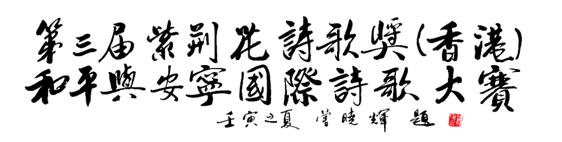 第三届紫荆花詩歌獎(香港)
和平與安寧國際詩歌大賽
壬寅之夏 曾曉輝 題